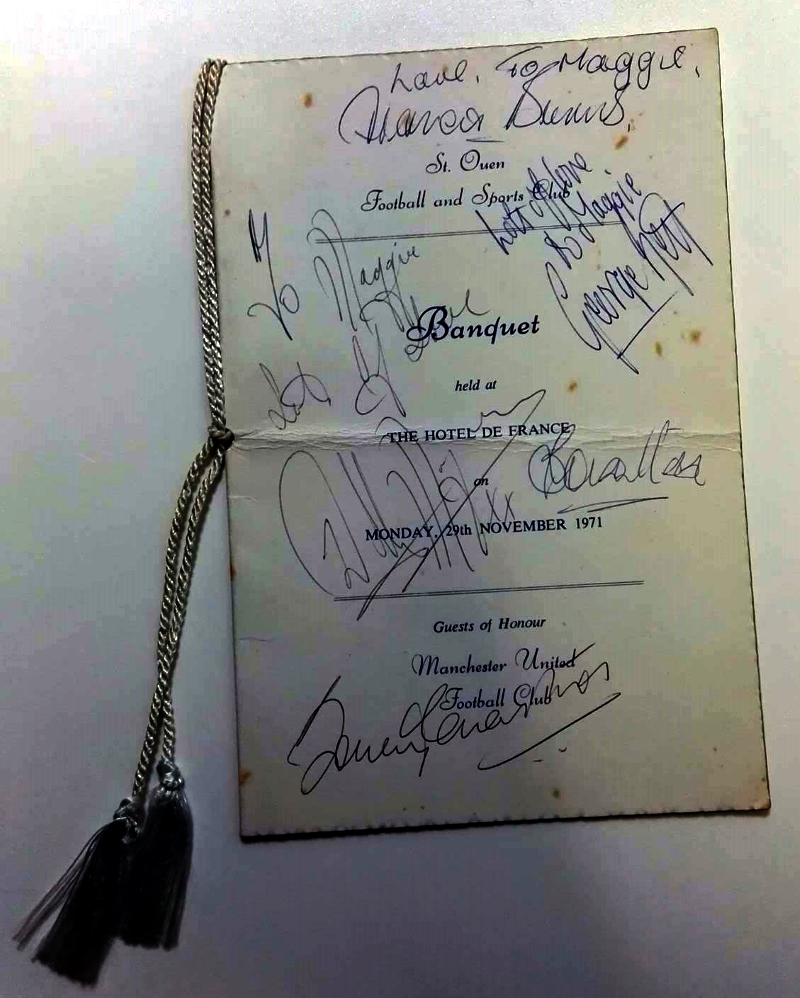 Love, To Maggie,
Francis Burns,
St. Ouen
Football and Sports Club
Lots of love
to Maggie
George
To Maggie
Lots of Love
Banquet
held at
THE HOTEL DE FRANCE
on
xx
MONDAY, 29th NOVEMBER 1971
Guests of Honour
Manchester United
Football Club